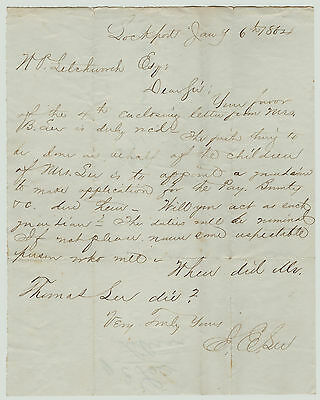 Lockport Jany 6th 1862
W P. Letchworth Esqr
Dear Sir;
Your favor
of the 4th enclosing letter from Mrs.
is duly recd. The first thing to
be done in behalf of the children
of Mrs. is to appoint a guardian
to make application for the Pay, Bounty
&c. due them – Will you act as such
guardian? The duties will be nominal
If not please name some respectable
person who will –
When did Mr.
Thomas die?
Very Truly Yours